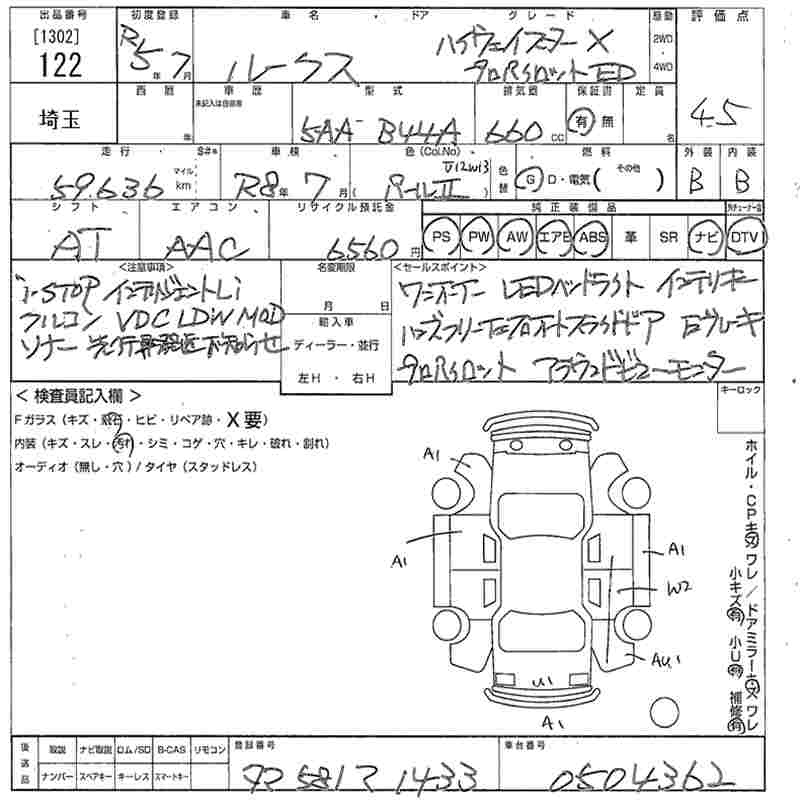 出品番号 初度登録 車名 ・ ドア グレード 駆動 評価点
[1302] R5 年 7 月 ハイウェイスター X 2WD
122 ルークス プロパイロット ED 4WD
西暦 車歴 型式 排気量 保証書 定員
埼玉 年 5AA- B44A 660 CC 有 無 名 4.5
走行 S#※ 車検 色(Col.No) 燃料 外装 内装
59.636 マイル km R8 年 7 月 ( パールII ) 色替 G D・電気( その他 ) B B
シフト エアコン リサイクル預託金 純正装備品
AT AAC 6560 円 PS PW AW エアB ABS 革 SR ナビ DTV
<注意事項> 名変期限 <セールスポイント>
i-STOP インテリジェントLi 月 日 ワンオーナー LEDヘッドライト インテリキー
フルコン VDC LDW MOD 輸入車 ハンズフリー 両オートスライドドア Eブレーキ
ソナー 先行車発進お知らせ ディーラー・並行 プロパイロット アラウンドビューモニター
左H ・ 右H
< 検査員記入欄 > キーロック
Fガラス (キズ・飛石・ヒビ・リペア跡・X要)
内装 (キズ・スレ・汚れ・シミ・コゲ・穴・キレ・破れ・割れ)
オーディオ (無し・穴) / タイヤ (スタッドレス)
A1
A1
A1
W2
AU1
U1
A1
ホイル・CPキズ ワレ / ドアミラーキズ ワレ
小キズ有 小U有 補修有
後返品 取説 ナビ取説 ロム/SD B-CAS リモコン 登録番号 車台番号
ナンバー スペアキー キーレス スマートキー 1433 0504362